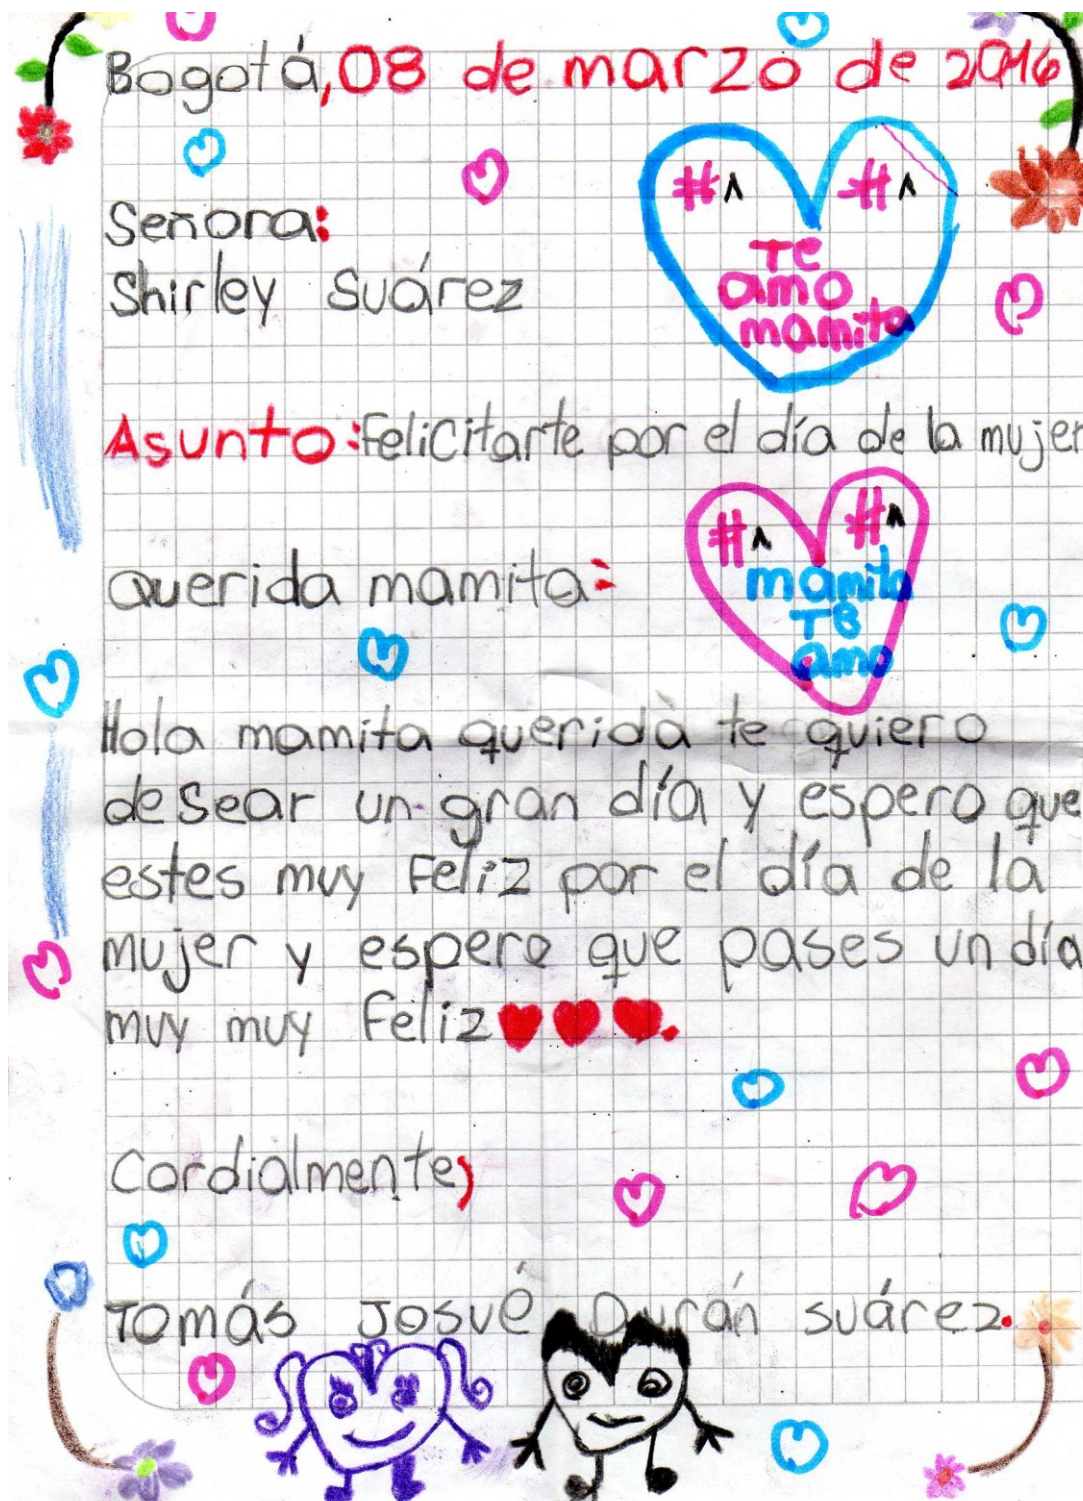 Bogotá, 08 de marzo de 2016
Señora:
Shirley Suárez
#^ #^
Te
amo
mamita
Asunto: Felicitarte por el día de la mujer
#^ #^
mamita
Te
amo
querida mamita:
Hola mamita querida te quiero
desear un gran día y espero que
estes muy Feliz por el día de la
mujer y espero que pases un día
muy muy Feliz ♥♥♥.
Cordialmente,
Tomás Josué Durán suárez.